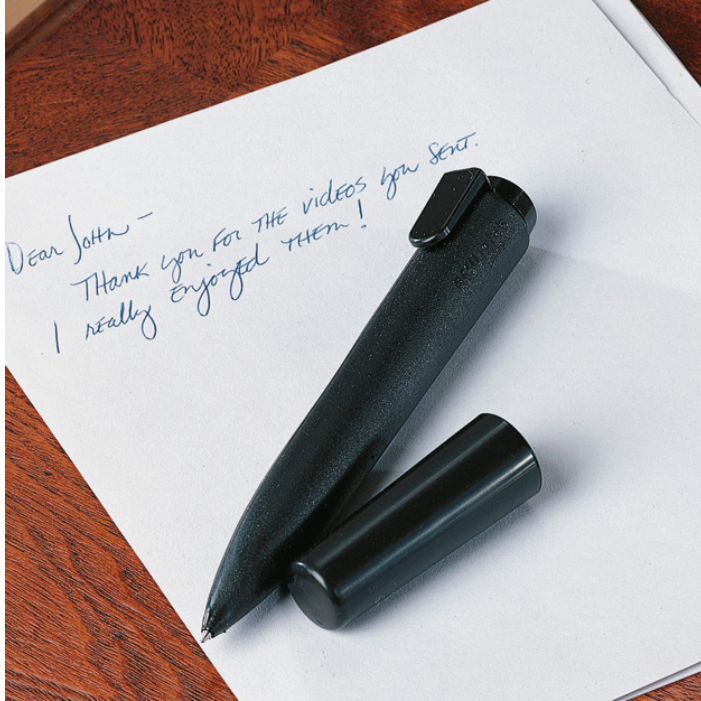 Dear John -
Thank you for the videos you sent.
I really enjoyed them!